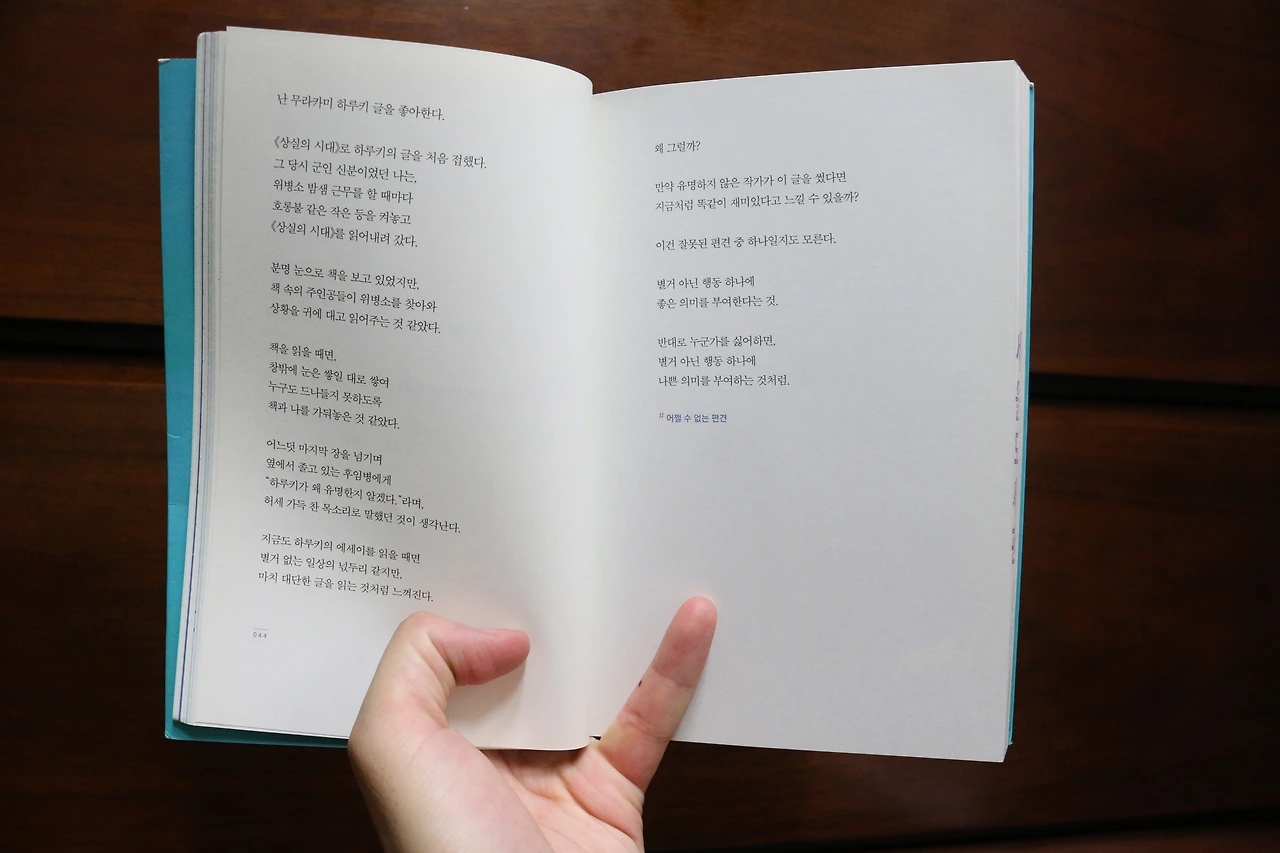 난 무라카미 하루키 글을 좋아한다.
《상실의 시대》로 하루키의 글을 처음 접했다.
그 당시 군인 신분이었던 나는,
위병소 밤샘 근무를 할 때마다
호롱불 같은 작은 등을 켜놓고
《상실의 시대》를 읽어내려 갔다.
분명 눈으로 책을 보고 있었지만,
책 속의 주인공들이 위병소를 찾아와
상황을 귀에 대고 읽어주는 것 같았다.
책을 읽을 때면,
창밖에 눈은 쌓일 대로 쌓여
누구도 드나들지 못하도록
책과 나를 가둬놓은 것 같았다.
어느덧 마지막 장을 넘기며
옆에서 졸고 있는 후임병에게
“하루키가 왜 유명한지 알겠다.”라며,
허세 가득 찬 목소리로 말했던 것이 생각난다.
지금도 하루키의 에세이를 읽을 때면
별거 없는 일상의 넋두리 같지만,
마치 대단한 글을 읽는 것처럼 느껴진다.
044
왜 그럴까?
만약 유명하지 않은 작가가 이 글을 썼다면
지금처럼 똑같이 재미있다고 느낄 수 있을까?
이건 잘못된 편견 중 하나일지도 모른다.
별거 아닌 행동 하나에
좋은 의미를 부여한다는 것.
반대로 누군가를 싫어하면,
별거 아닌 행동 하나에
나쁜 의미를 부여하는 것처럼.
# 어쩔 수 없는 편견